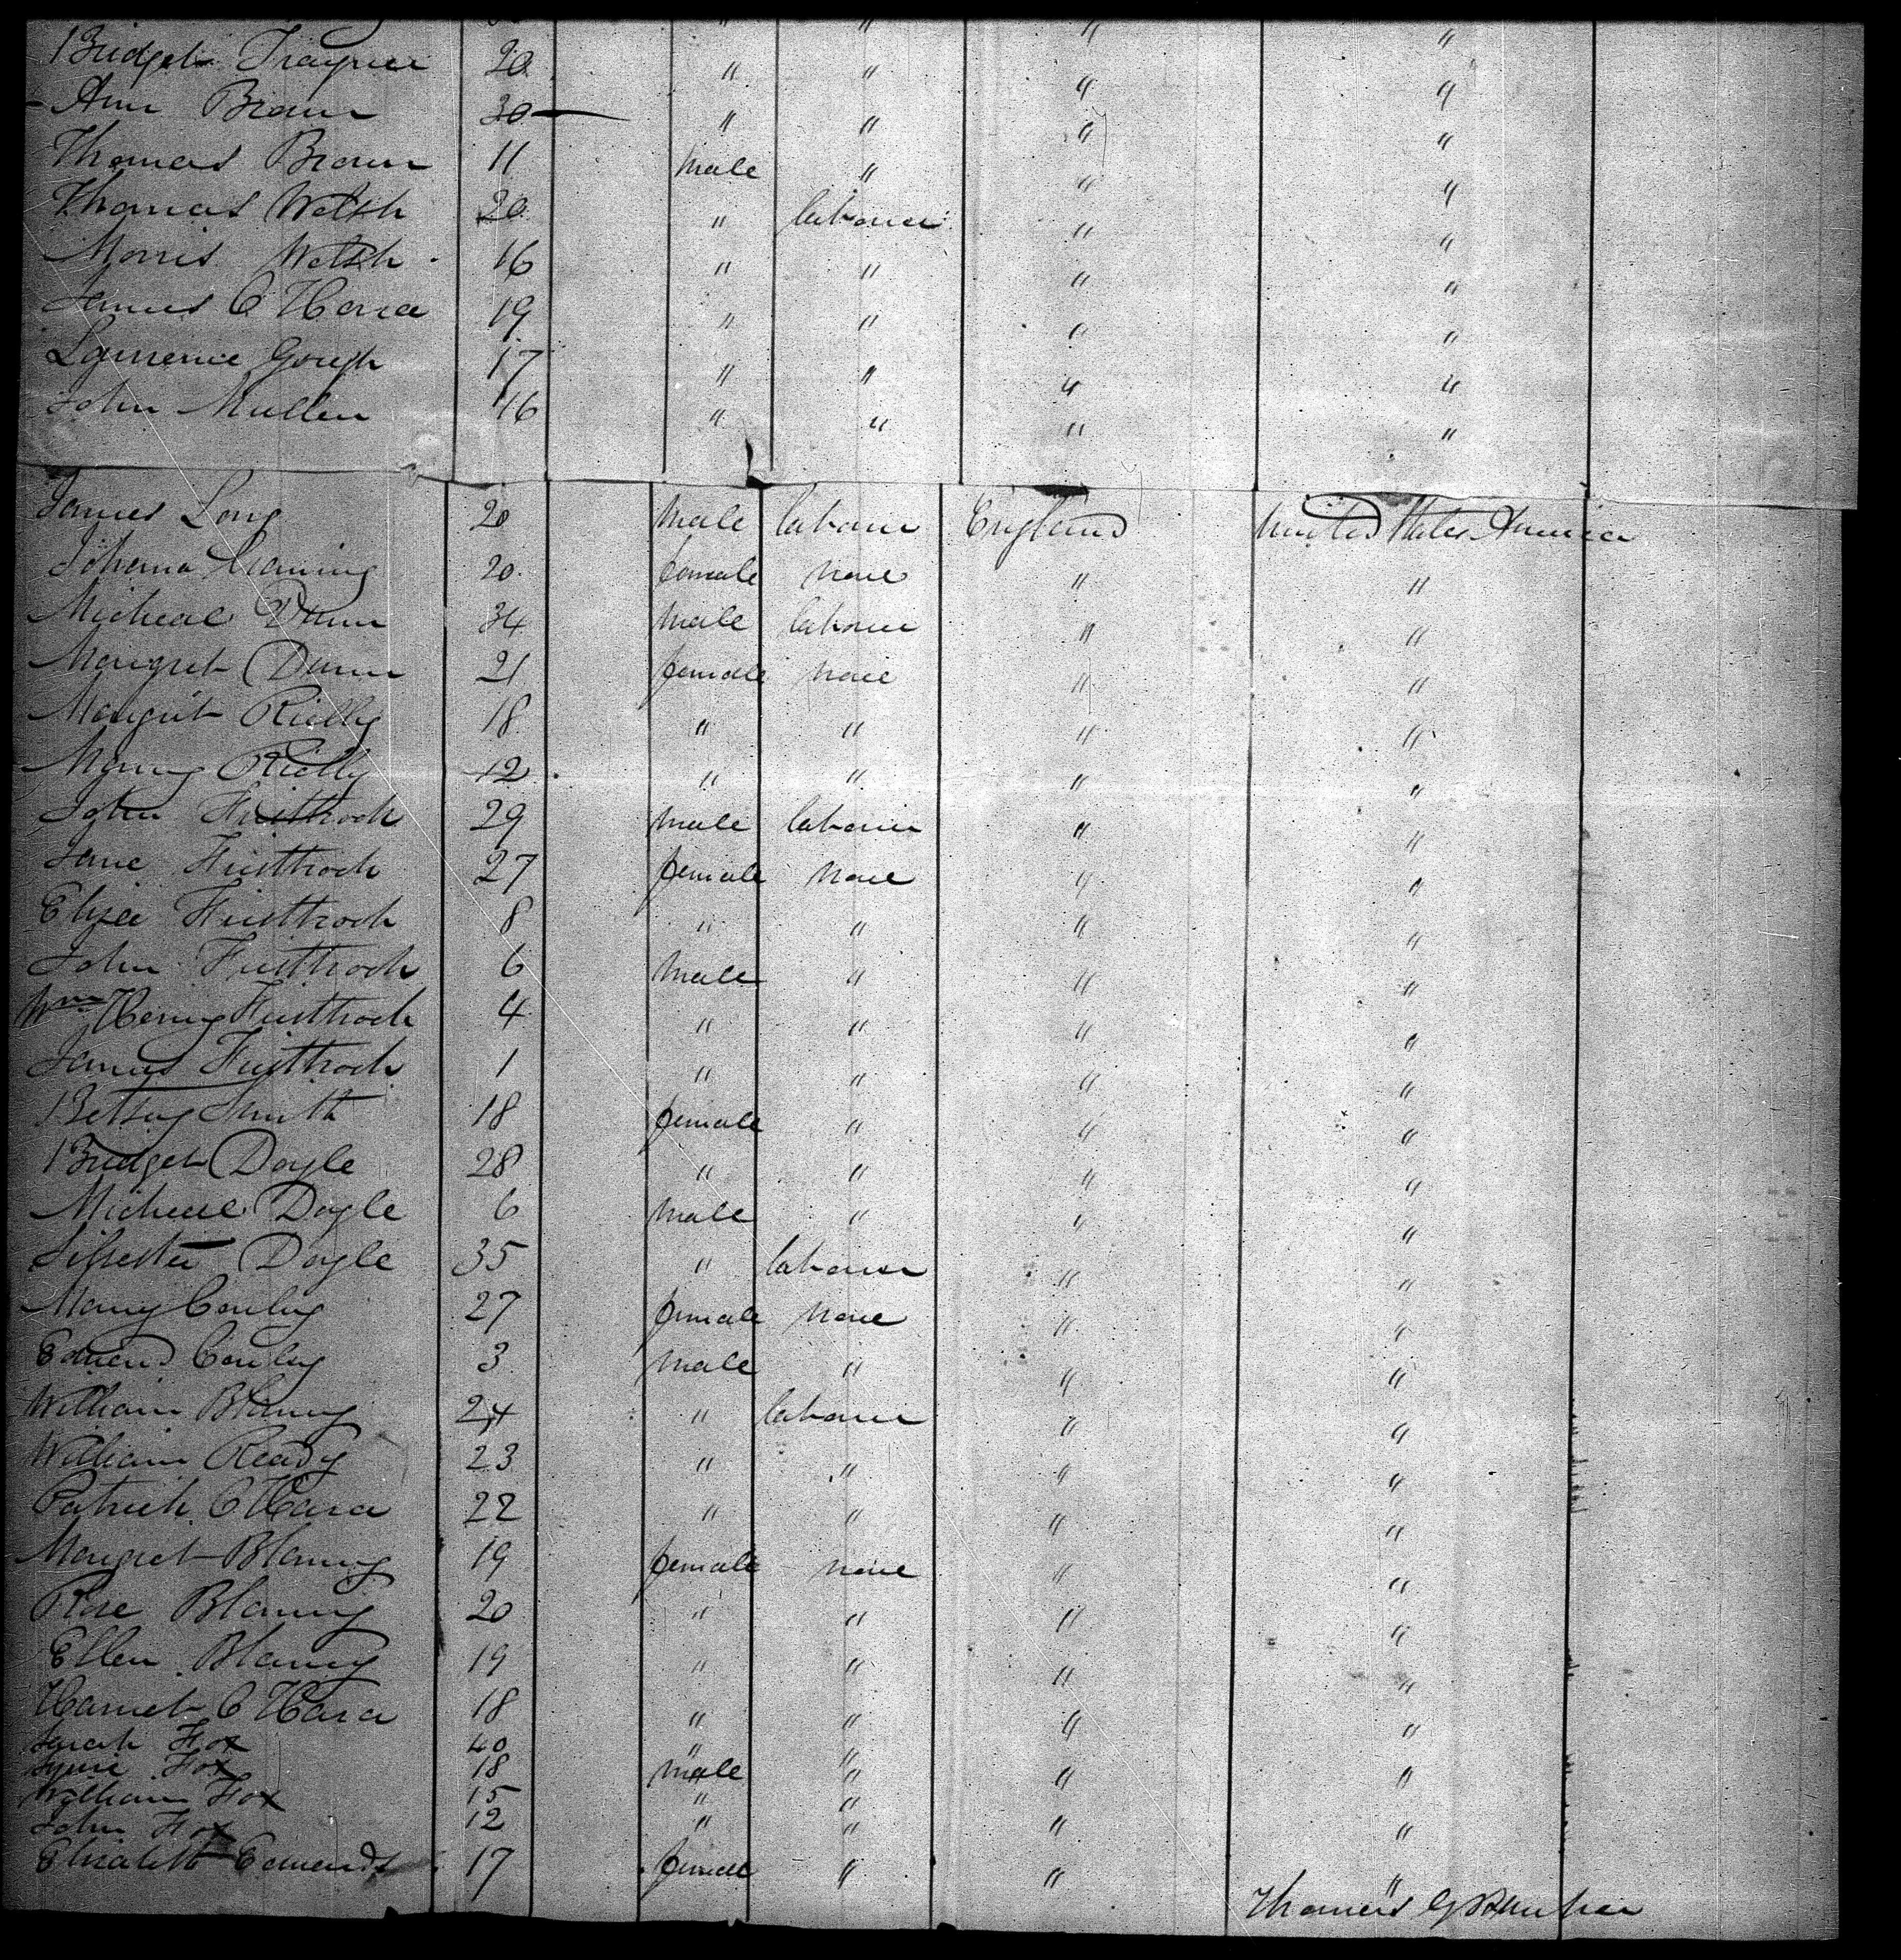 " " " "
Bridget Traynor 20 " " " "
Ann Brown 30 " " " "
Thomas Brown 11 male " " "
Thomas Welsh 20 " labourer " "
Morris Welsh 16 " " " "
James O Hara 19 " " " "
Lawrence Gough 17 " " " "
John Mullen 16 " " " "
James Long 20 male labourer England United States America
Johanna 20 female none " "
Micheal Dunn 34 male labourer " "
Margret Dunn 21 female none " "
Margrit Rielly 18 " " " "
Mary Rielly 12 " " " "
John 29 male labourer " "
Jane 27 female none " "
Eliza 8 " " " "
John 6 male " " "
Wm Henry 4 " " " "
James 1 " " " "
Betsey Smith 18 female " " "
Bridget Doyle 28 " " " "
Micheal Doyle 6 male " " "
Silvester Doyle 35 " labourer " "
Mary Conley 27 female none " "
Edmend Conley 3 male " " "
William Blaney 24 " labourer " "
William Ready 23 " " " "
Patrick O Hara 22 " " " "
Margret Blaney 19 female none " "
Rose Blaney 20 " " " "
Ellen Blaney 19 " " " "
Harriet O Hara 18 " " " "
Sarah Fox 40 " "
Fox 18 male " " "
William Fox 15 " "
John Fox 12 " " " "
Elizabeth Edmends 17 female " " "
Thomas G